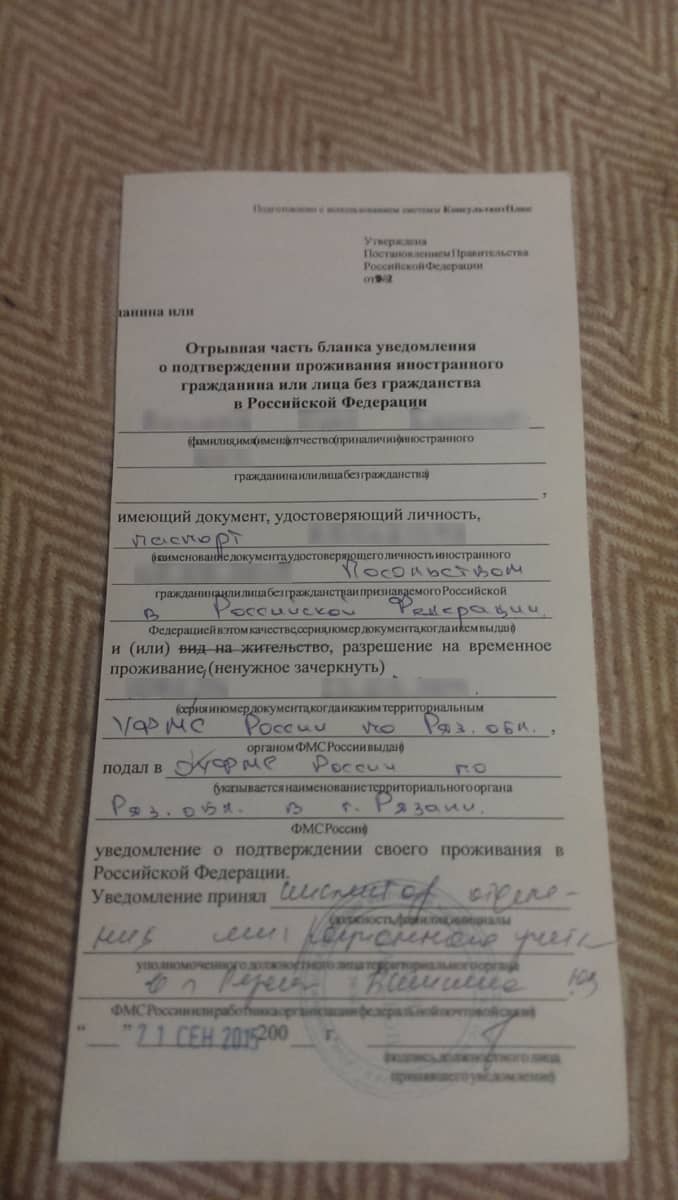 Подготовлено с использованием системы КонсультантПлюс
Утверждена
Постановлением Правительства
Российской Федерации
от
данина или
Отрывная часть бланка уведомления
о подтверждении проживания иностранного
гражданина или лица без гражданства
в Российской Федерации
(фамилия, имя (имена) отчество (при наличии) иностранного
гражданина или лица без гражданства)
,
имеющий документ, удостоверяющий личность,
паспорт
(наименование документа, удостоверяющего личность иностранного
Посольством
гражданина или лица без гражданства и признаваемого Российской
в Российской Федерации.
Федерацией в этом качестве, серия, номер документа, когда и кем выдан)
и (или) вид на жительство, разрешение на временное
проживание, (ненужное зачеркнуть)
(серия и номер документа, когда и каким территориальным
УФМС России по Ряз. обл. ,
органом ФМС России выдан)
подал в УФМС России по
(указывается наименование территориального органа
Ряз. обл. в г. Рязани.
ФМС России)
уведомление о подтверждении своего проживания в
Российской Федерации.
Уведомление принял инспектор отделе-
(должность, фамилия, инициалы
ния миграционного учета
уполномоченного должностного лица территориального органа
ФМС России или работника организации федеральной почтовой связи)
“ ” 21 СЕН 2015 200 г.
(подпись должностного лица,
принявшего уведомление)